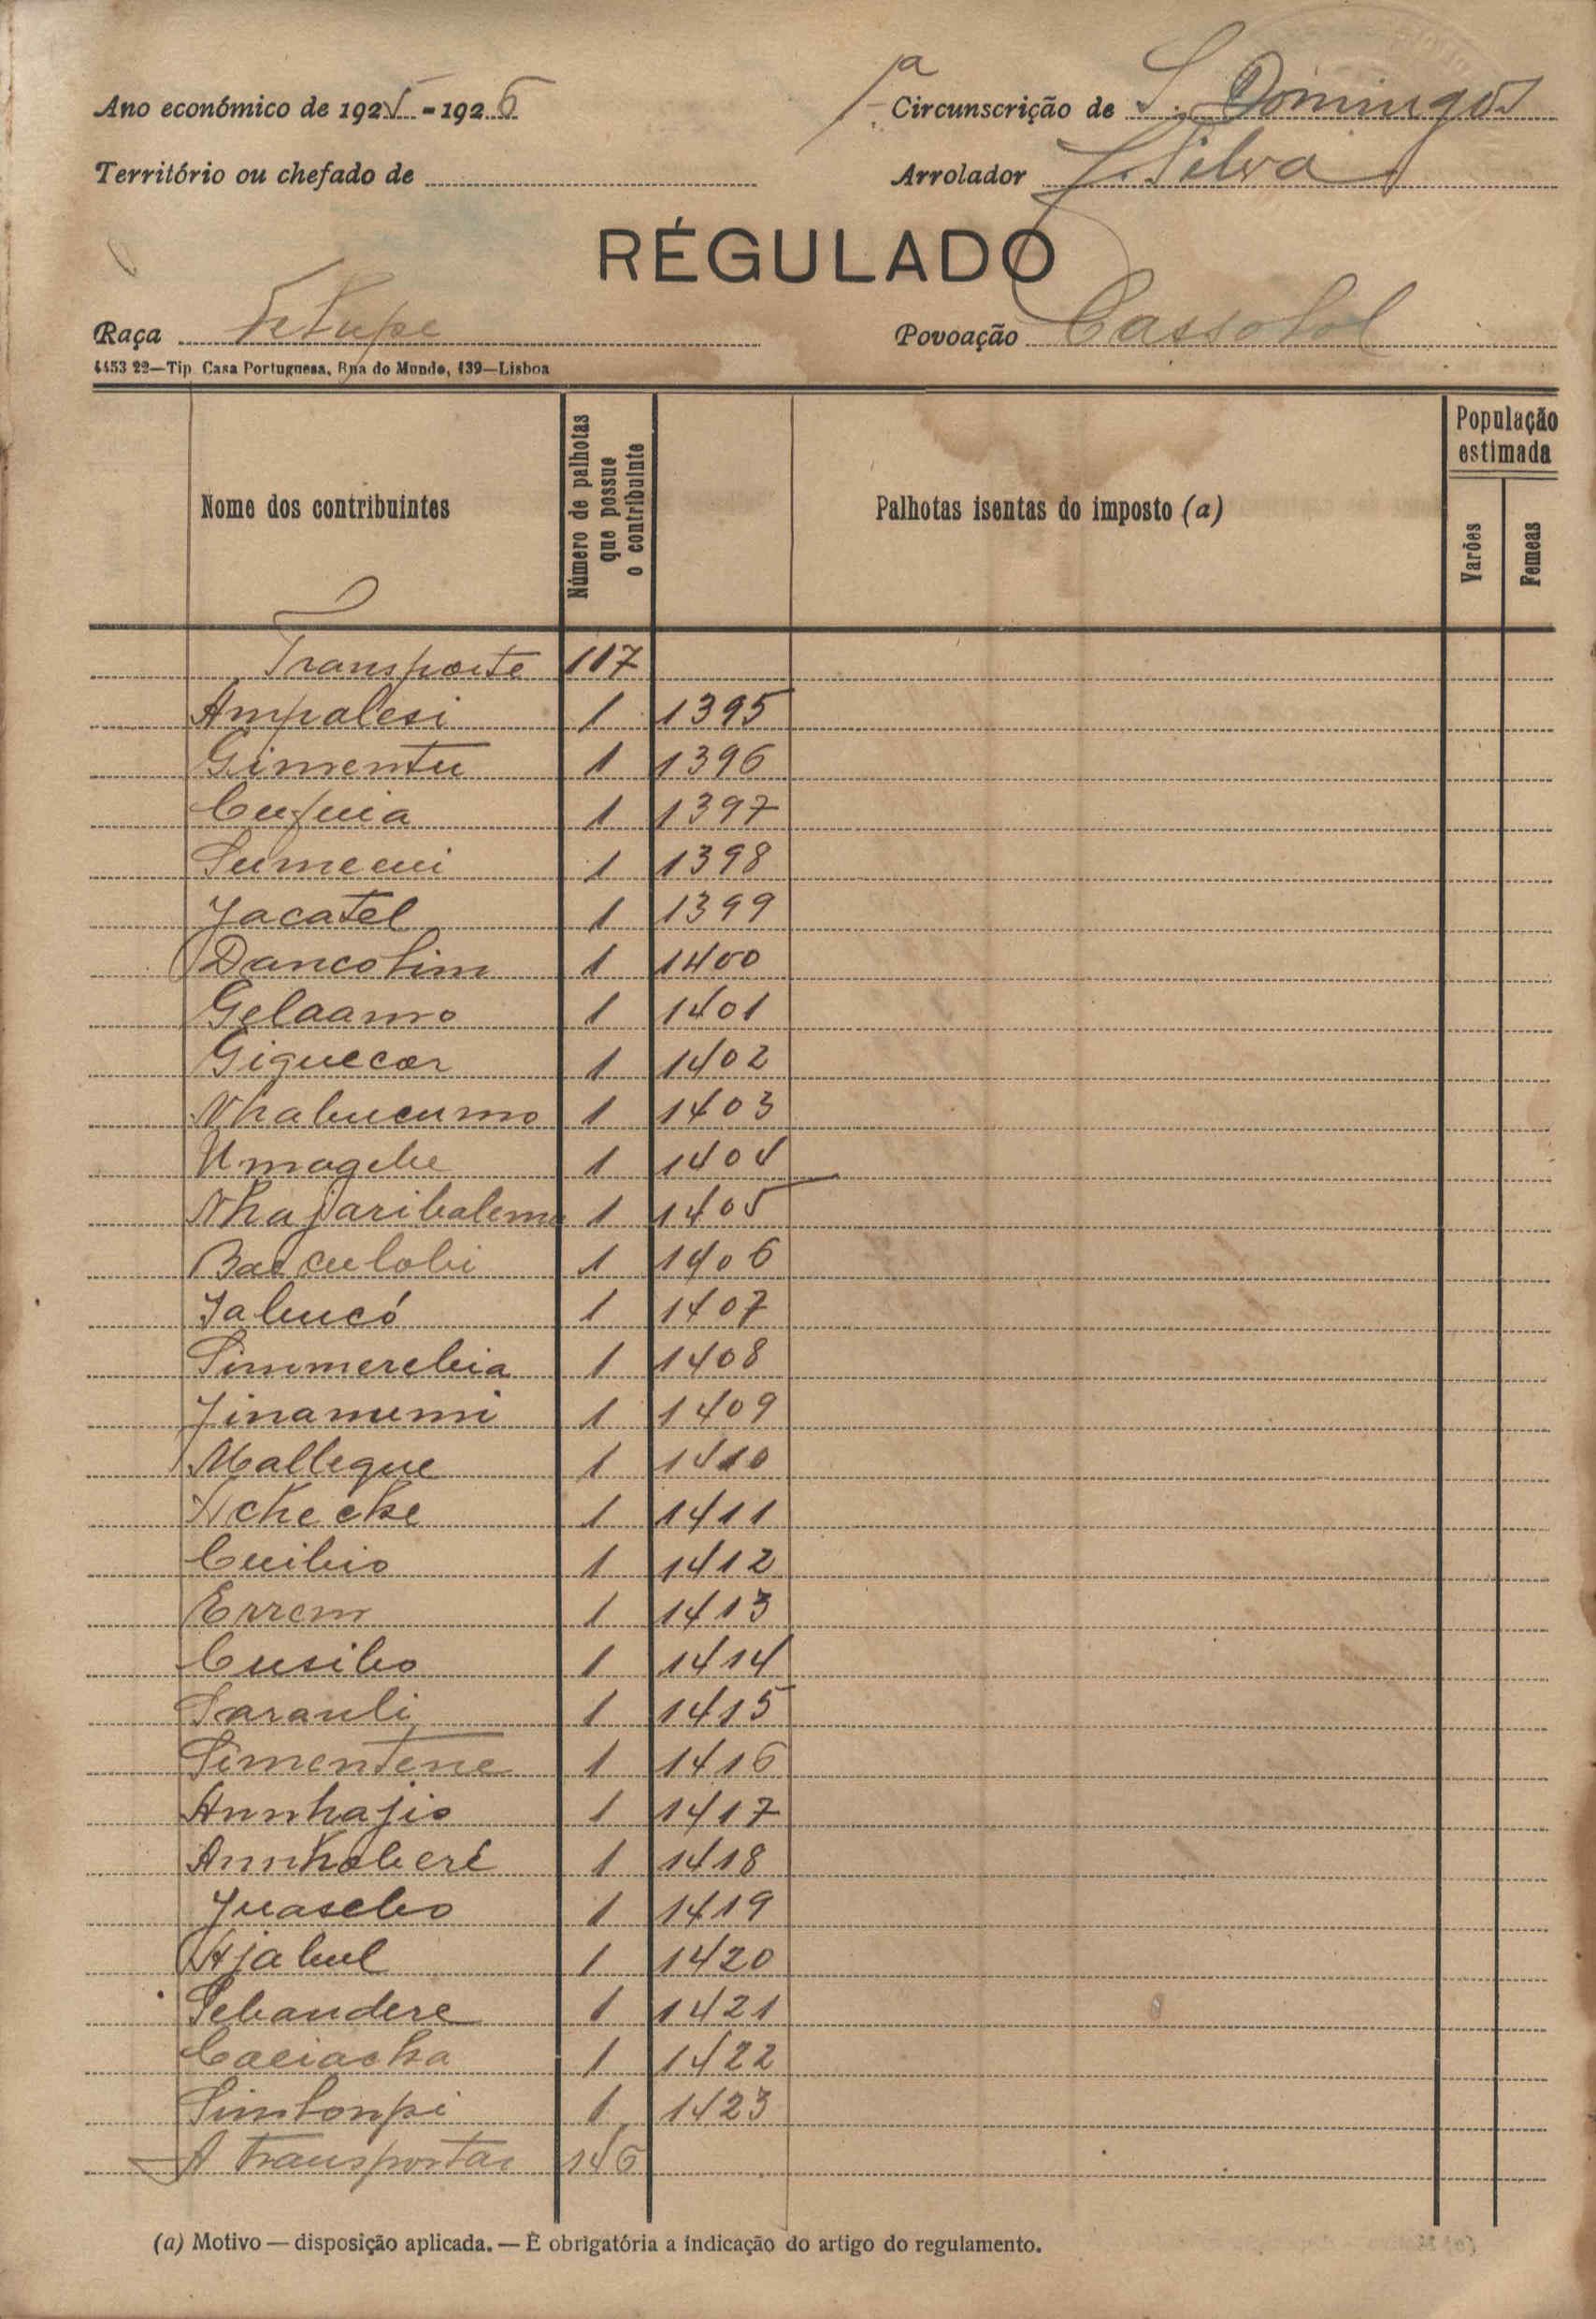 Ano económico de 1925-1926
1ª Circunscrição de S. Domingos
Território ou chefado de
Arrolador J. Silva
RÉGULADO
Raça Felupe
Povoação Cassolol
4453 22—Tip. Casa Portuguesa, Rua do Mundo, 139—Lisboa
Nome dos contribuintes
Número de palhotas que possue o contribuinte
Palhotas isentas do imposto (a)
População estimada
Varões
Femeas
Transporte 117
Ampalesi 1 1395
Gimentu 1 1396
Cufuia 1 1397
Sumecui 1 1398
Jacatel 1 1399
Dancolim 1 1400
Gelaamo 1 1401
Giguecor 1 1402
Nhabucumo 1 1403
Umagebe 1 1404
Nhajaribalemo 1 1405
Bacculobi 1 1406
Jabucó 1 1407
Simmerebia 1 1408
Jinamumi 1 1409
Mallegue 1 1410
Achecke 1 1411
Cuibio 1 1412
Errem 1 1413
Cusibo 1 1414
Sarauli 1 1415
Simentene 1 1416
Annhajio 1 1417
Annhoberé 1 1418
Juasebo 1 1419
Ajabul 1 1420
Sebandere 1 1421
Caeiacha 1 1422
Simlonpi 1 1423
A transportar 146
(a) Motivo — disposição aplicada. — É obrigatória a indicação do artigo do regulamento.